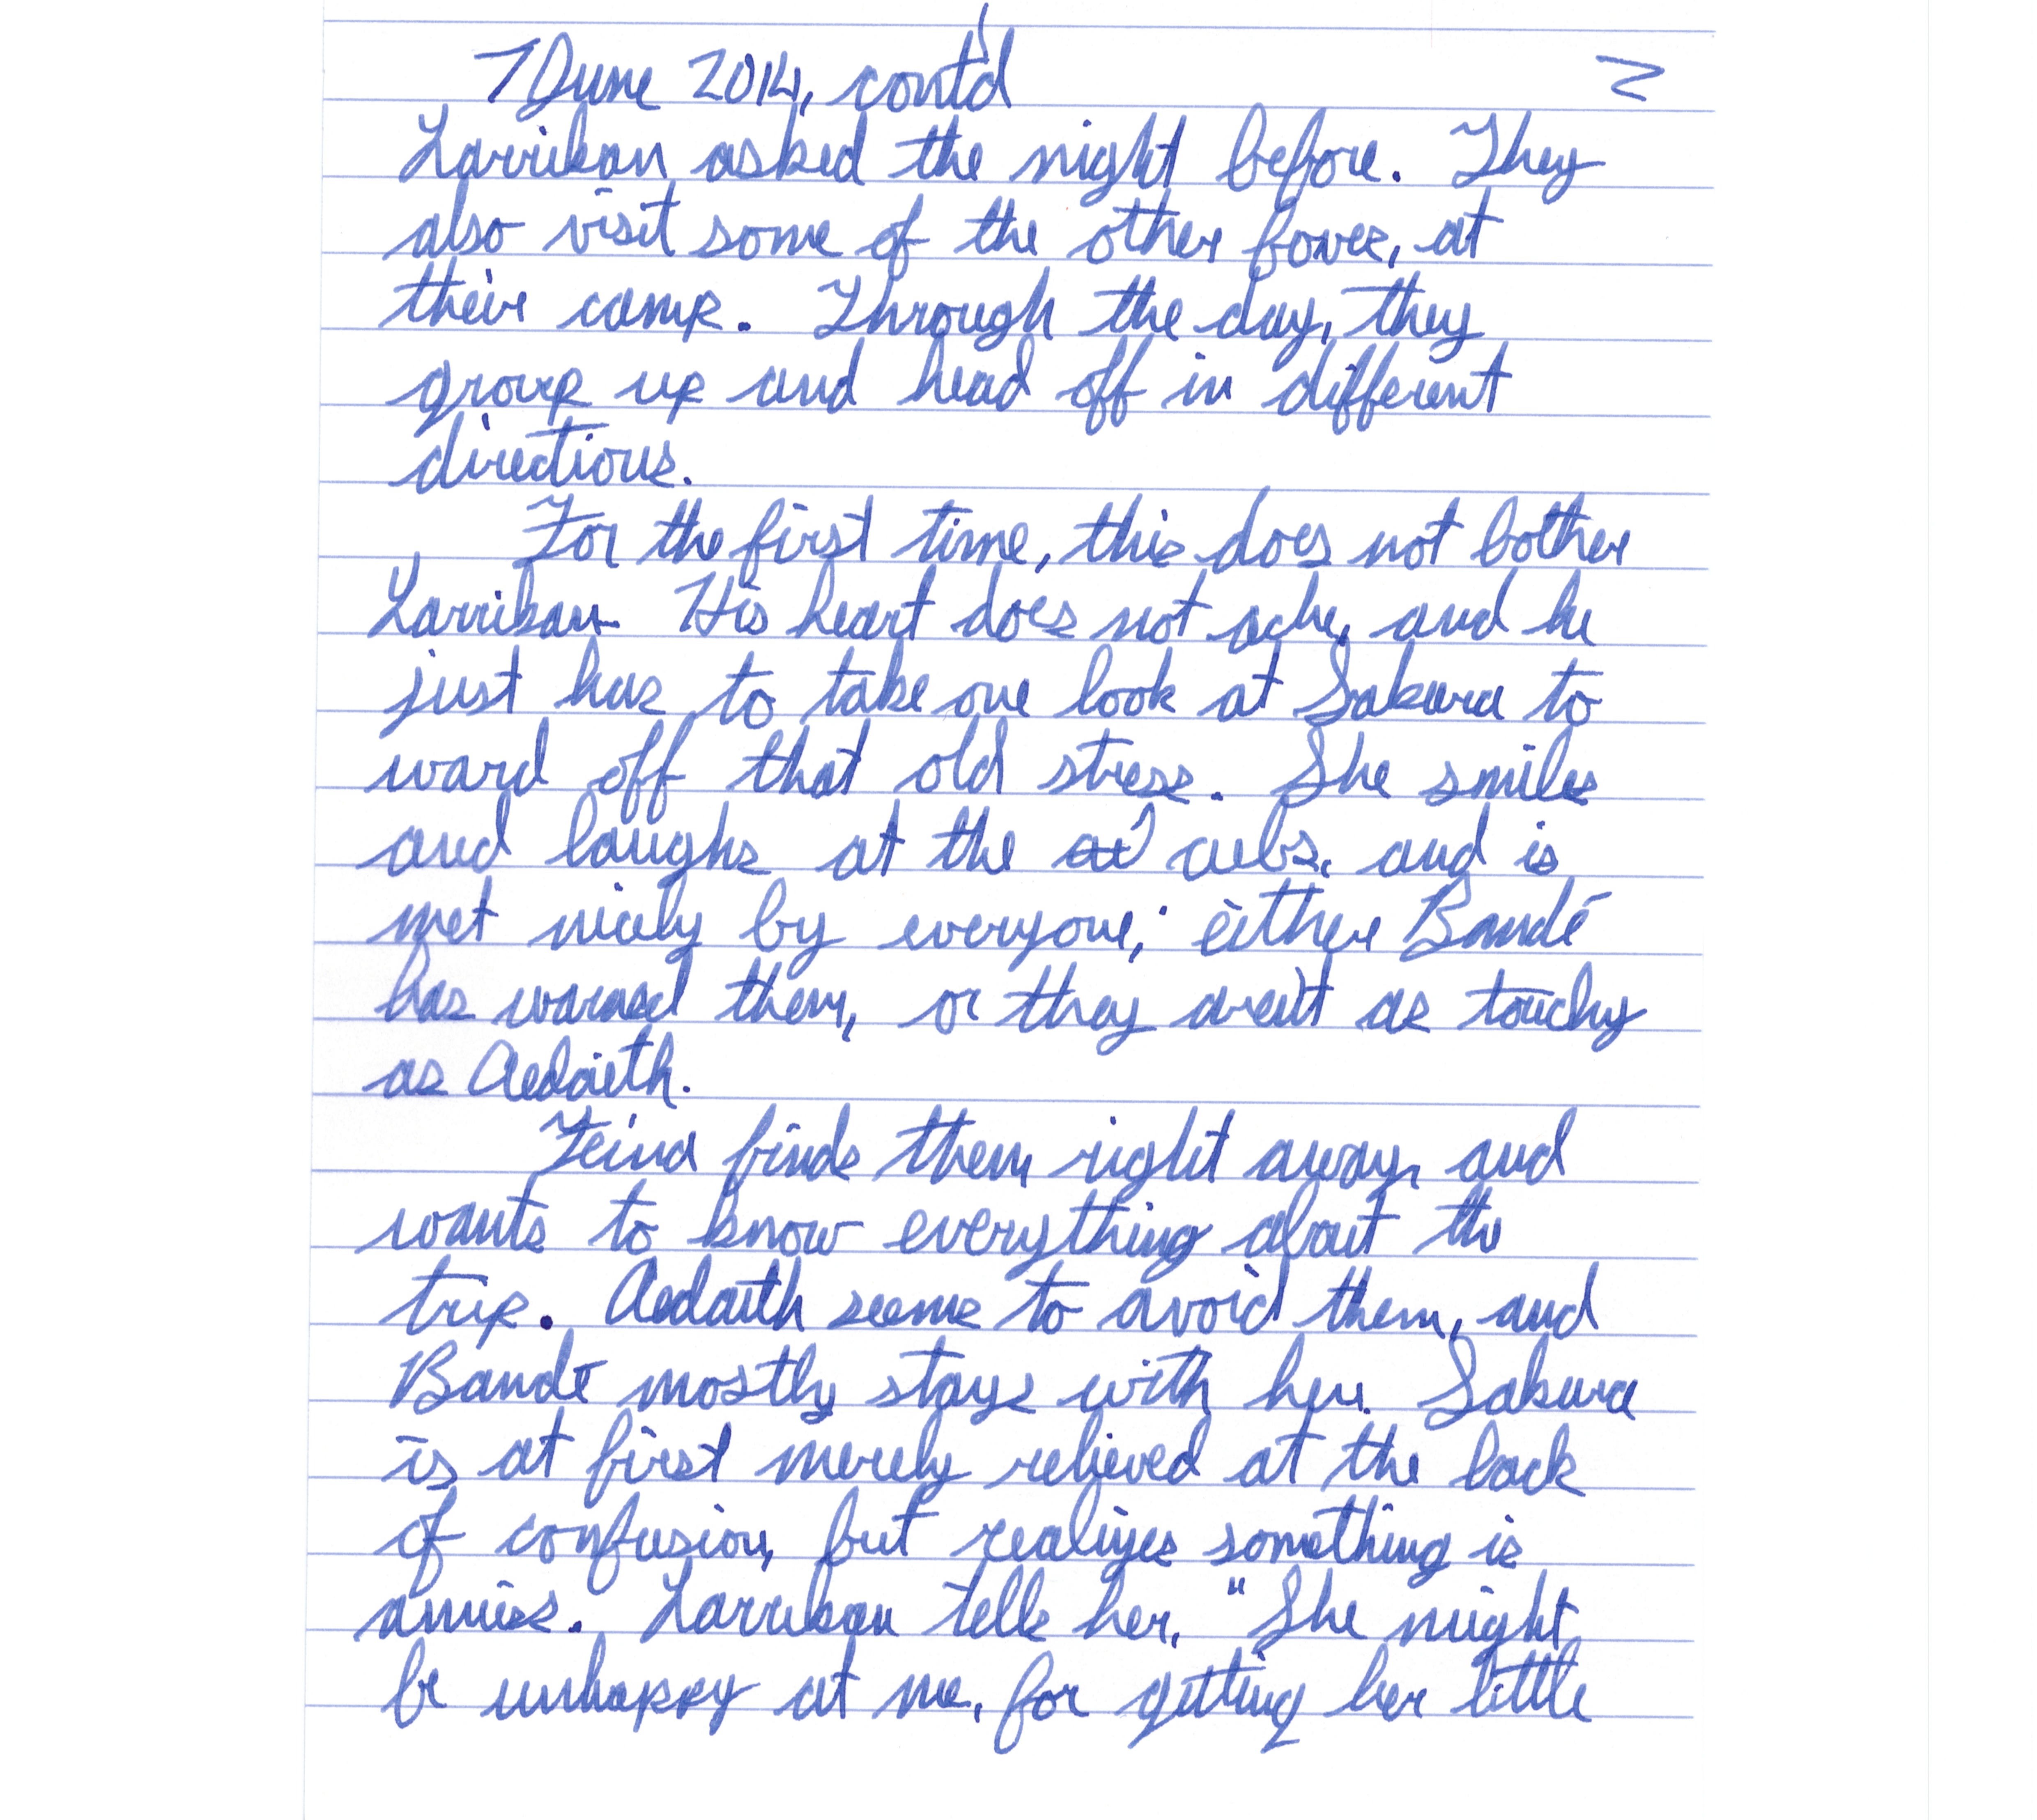 7 June 2014, cont'd 2
Larrikan asked the night before. They
also visit some of the other foxes, at
their camp. Through the day, they
group up and head off in different
directions.
For the first time, this does not bother
Larrikan. His heart does not ache, and he
just has to take one look at Sakura to
ward off that old stress. She smiles
and laughs at the cubs, and is
met nicely by everyone; either Bandé
has warned them, or they aren't as touchy
as Aedaith.
Feina finds them right away, and
wants to know everything about the
trip. Aedaith seems to avoid them, and
Bandé mostly stays with her. Sakura
is at first merely relieved at the lack
of confusion, but realizes something is
amiss. Larrikan tells her, "She might
be unhappy at me, for getting her little